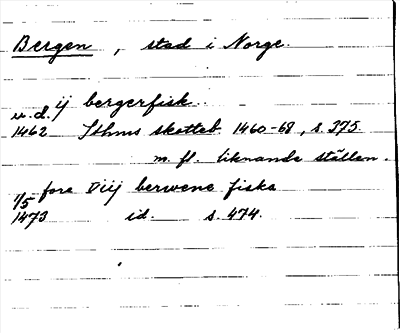 Bergen, stad i Norge.
u.d. ij bergerfisk.
1462 Sthms skotteb. 1460-68, s. 375.
m. fl. liknande ställen.
1/5 fore Viij berwene fiska
1473 id. s. 474.